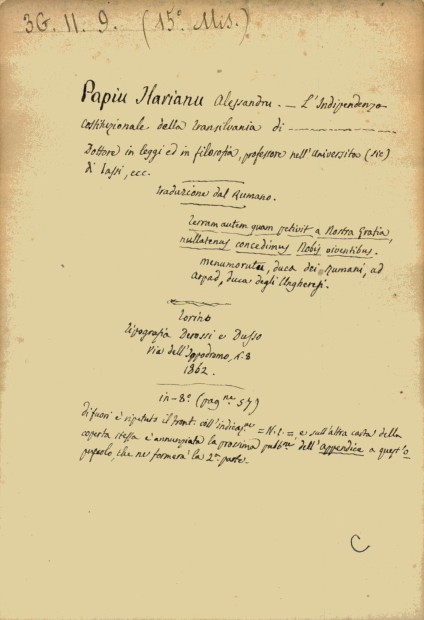 3G. 11. 9. (15º Mis.)
Papiu Ilarianu Alessandru. — L'Indipendenza
Costituzionale della Transilvania di —
Dottore in leggi ed in filosofia, professore nell'Universita (sic)
di Iassi, ecc.
Traduzione dal Rumano.
Terram autem quam petivit a Nostra Gratia,
nullatenus concedimus Nobis viventibus.
Menumorut, duca dei Rumani, ad
Arpad, duca degli Ungheresi.
Torino
Tipografia Derossi e Dusso
via dell'Ippodromo, N. 8
1862.
in-8º (pagne 57)
Di fuori è riputato il front. coll'indicazne = N. 1. = e sull'altra carta della
coperta stessa è annunziata la prossima pubbne dell'appendice a quest'o
puscolo, che ne formerà la 2ª parte.
C